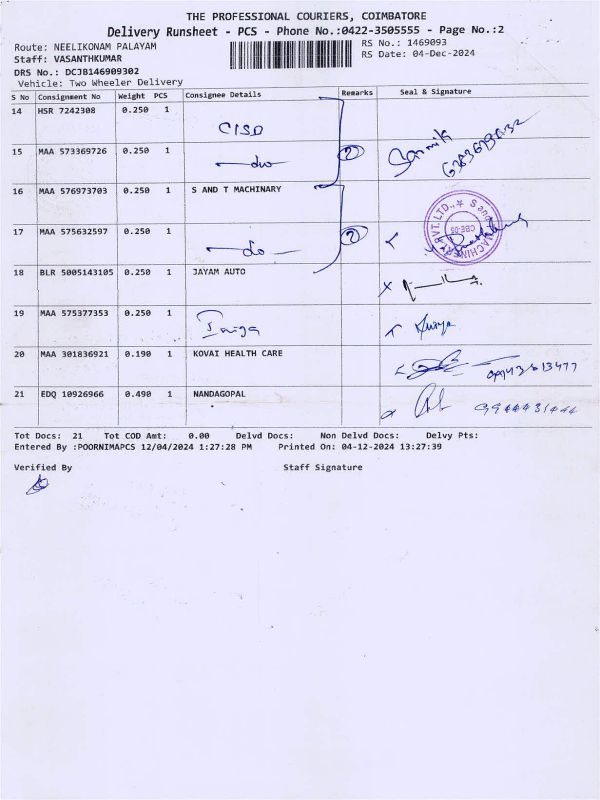 THE PROFESSIONAL COURIERS, COIMBATORE
Delivery Runsheet - PCS - Phone No.:0422-3505555 - Page No.:2
Route: NEELIKONAM PALAYAM
RS No.: 1469093
Staff: VASANTHKUMAR
RS Date: 04-Dec-2024
DRS No.: DCJB146909302
Vehicle: Two Wheeler Delivery
S No Consignment No Weight PCS Consignee Details Remarks Seal & Signature
14 HSR 7242308 0.250 1
15 MAA 573369726 0.250 1 do 2
16 MAA 576973703 0.250 1 S AND T MACHINARY
17 MAA 575632597 0.250 1 do 2
18 BLR 5005143105 0.250 1 JAYAM AUTO
19 MAA 575377353 0.250 1
20 MAA 301836921 0.190 1 KOVAI HEALTH CARE
21 EDQ 10926966 0.490 1 NANDAGOPAL
Tot Docs: 21 Tot COD Amt: 0.00 Delvd Docs: Non Delvd Docs: Delvy Pts:
Entered By :POORNIMAPCS 12/04/2024 1:27:28 PM Printed On: 04-12-2024 13:27:39
Verified By Staff Signature